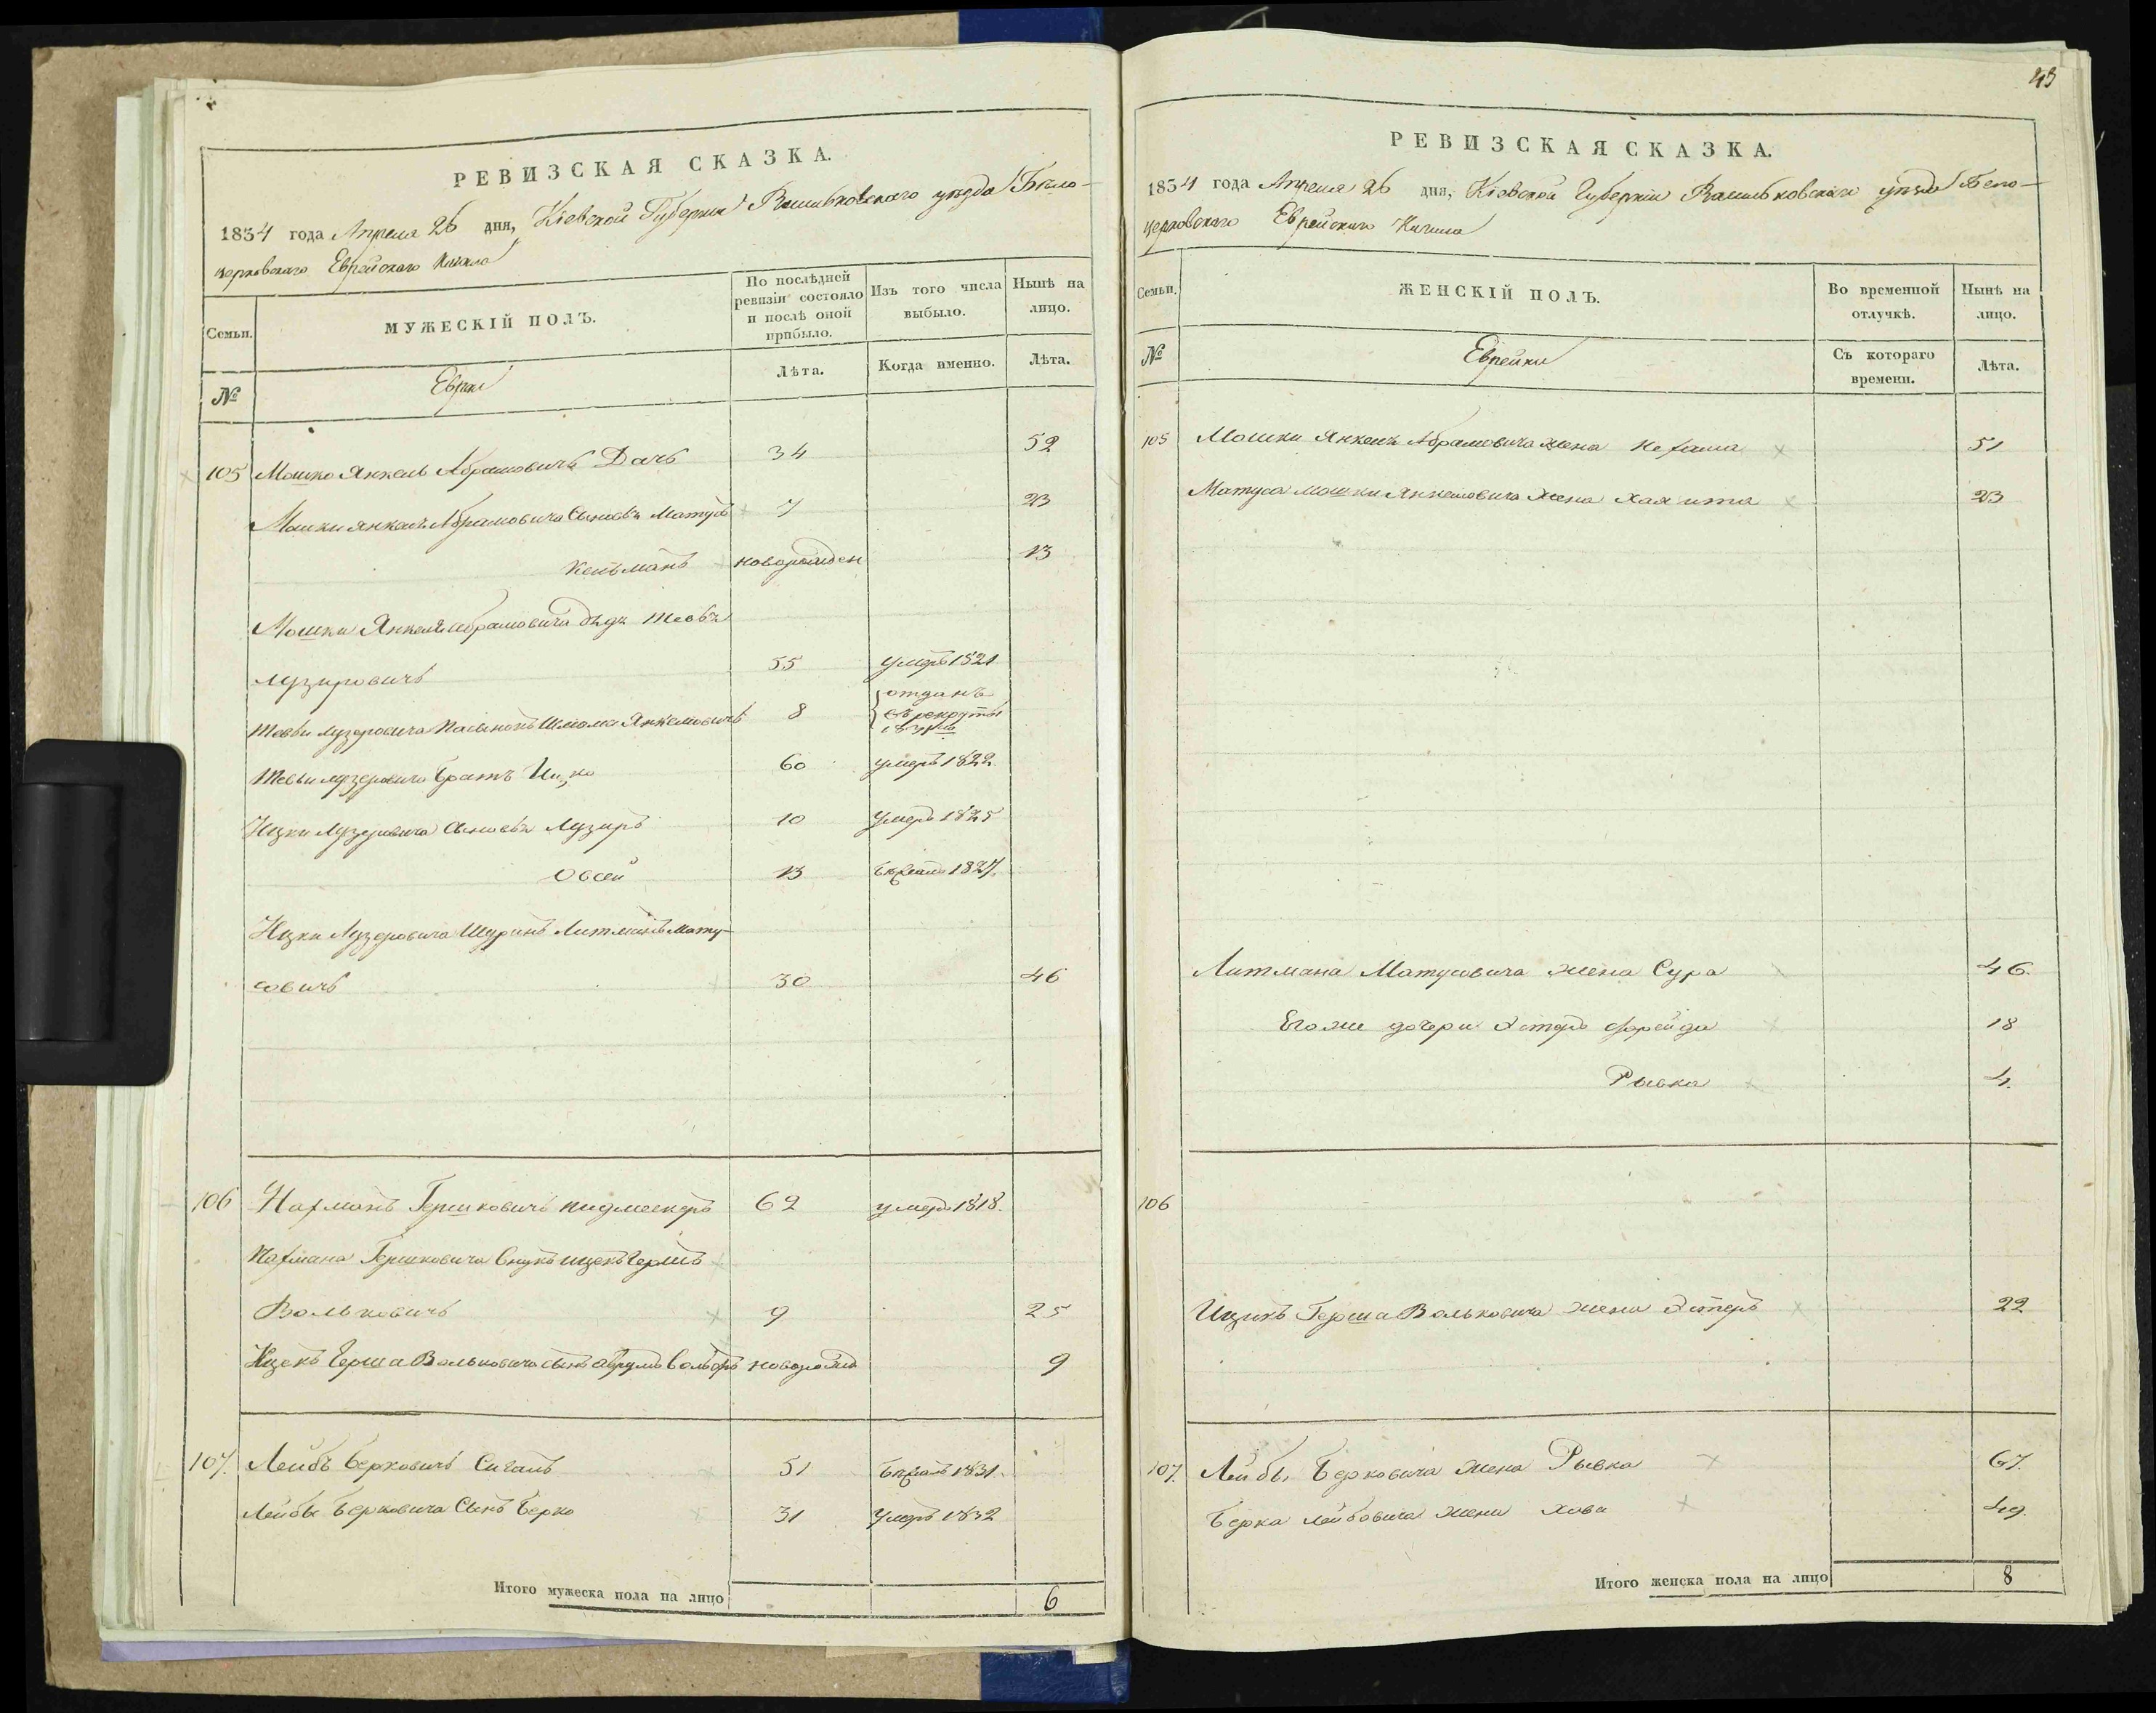 РЕВИЗСКАЯ СКАЗКА.
1834 года Апреля 26 дня, Кіевской Губерніи Васильковскаго уезда Бѣло-
церковскаго Еврейскаго Кагала
Семьи.
МУЖЕСКІЙ ПОЛЪ.
По послѣдней ревизіи состояло и послѣ оной прибыло.
Изъ того числа выбыло.
Нынѣ на лицо.
№
Евреи
Лѣта.
Когда именно.
Лѣта.
105 Мошко Янкель Абрамовичъ Дачъ 34 52
Мошки Янкеля Абрамовича Сыновья Матусъ 7 23
Кельманъ новорожден 13
Мошки Янкеля Абрамовича дядя Тевья
Лузировичъ 55 умеръ 1821
Тевьи Лузеровича Пасынокъ Шлиома Янкелевичъ 8 отданъ
въ рекруты
Тевьи Лузеровича Братъ Ицко 60 умеръ 1822
Ицки Лузеровича Сыновья Лузиръ 10 умеръ 1825
Овсей 13 бежалъ 1827.
Ицки Лузеровича Шуринъ Литманъ Мату-
совичъ 30 46
106 Нахманъ Гершковичъ 62 умеръ 1818.
Нахмана Гершковича Внукъ Ицекъ Гершъ
Вольковичъ 9 25
Ицекъ Герша Вольковича сынъ Аврумъ Вольфъ новорожд 9
107. Лейбъ Берковичъ Сигалъ 51 бежалъ 1831.
Лейбы Берковича Сынъ Берко 31 умеръ 1832
Итого мужеска пола на лицо 6
43
РЕВИЗСКАЯ СКАЗКА.
1834 года Апреля 26 дня, Кіевской Губерніи Васильковскаго уезда Бело-
церковскаго Еврейскаго Кагала
Семьи.
ЖЕНСКІЙ ПОЛЪ.
Во временной отлучкѣ.
Нынѣ на лицо.
№
Еврейки
Съ котораго времени.
Лѣта.
105 Мошки Янкеля Абрамовича жена Нехама 51
Матуса Мошки Янкелиовича жена Хая ита 23
Литмана Матусовича жена Сура 46.
Его же дочери Эстеръ Фрейда 18
Рывка 4.
106
Ицикъ Герша Вольковича жена Эстеръ 22
107. Лейбы Берковича жена Рывка 67.
Берка Лейбовича жена Хова 49.
Итого женска пола на лицо 8